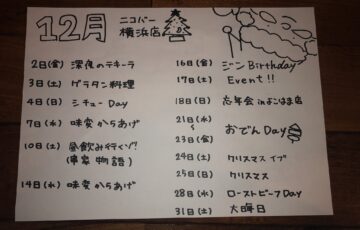 12月
ニコバー
横浜店
2日(金) 深夜のテキーラ
3日(土) グラタン料理
4日(日) シチューDay
7日(水) 味変からあげ
10日(土) 昼飲み行くゾ!
14日(水) 味変からあげ
16日(金) ジンBirthday
17日(土) Event!!
18日(日) 忘年会inよこはま店
21日(水)
〜
23日(金)
おでんDay
24日(土) クリスマスイブ
25日(日) クリスマス
28日(水) ローストビーフDay
31日(土) 大晦日